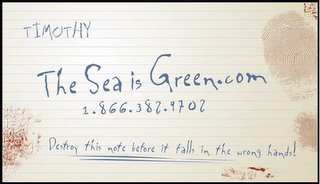 TIMOTHY
The Sea is Green.com
1.866.382.9702
Destroy this note before it falls in the wrong hands!